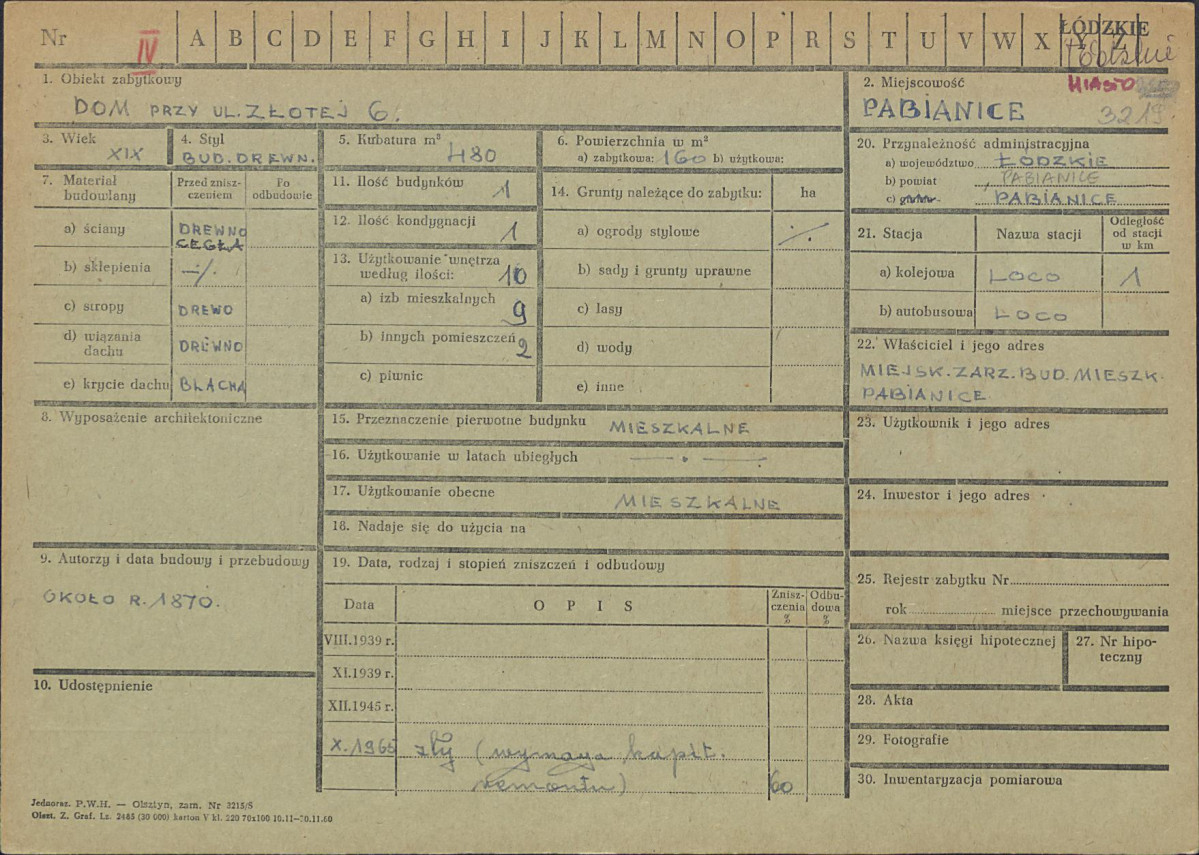 Nr IV A B C D E F G H I J K L M N O P R S T U V W X Y Z
ŁÓDZKIE
1. Obiekt zabytkowy
DOM PRZY UL. ZŁOTEJ 6.
2. Miejscowość
MIASTO
PABIANICE
3219
3. Wiek
XIX
4. Styl
BUD. DREWN.
5. Kubatura m³
480
6. Powierzchnia w m²
a) zabytkowa: 160 b) użytkowa:
20. Przynależność administracyjna
a) województwo ŁÓDZKIE
b) powiat PABIANICE
c) PABIANICE
7. Materiał budowlany
Przed zniszczeniem
Po odbudowie
a) ściany DREWNO
CEGŁA
b) sklepienia -/.
c) stropy DREWO
d) wiązania dachu DREWNO
e) krycie dachu BLACHA
11. Ilość budynków 1
12. Ilość kondygnacji 1
13. Użytkowanie wnętrza
według ilości: 10
a) izb mieszkalnych 9
b) innych pomieszczeń 2
c) piwnic
14. Grunty należące do zabytku: ha
a) ogrody stylowe ·/.
b) sady i grunty uprawne
c) lasy
d) wody
e) inne
21. Stacja
Nazwa stacji
Odległość od stacji w km
a) kolejowa LOCO 1
b) autobusowa LOCO
22. Właściciel i jego adres
MIEJSK. ZARZ. BUD. MIESZK.
PABIANICE
8. Wyposażenie architektoniczne
15. Przeznaczenie pierwotne budynku MIESZKALNE
16. Użytkowanie w latach ubiegłych — . —
17. Użytkowanie obecne MIESZKALNE
18. Nadaje się do użycia na
23. Użytkownik i jego adres
24. Inwestor i jego adres
9. Autorzy i data budowy i przebudowy
OKOŁO R. 1870.
10. Udostępnienie
19. Data, rodzaj i stopień zniszczeń i odbudowy
Data OPIS Zniszczenia % Odbudowa %
VIII.1939 r.
XI.1939 r.
XII.1945 r.
X. 1965 zły (wymaga kapit.
remontu) 60
25. Rejestr zabytku Nr
rok miejsce przechowywania
26. Nazwa księgi hipotecznej
27. Nr hipoteczny
28. Akta
29. Fotografie
30. Inwentaryzacja pomiarowa
Jednoraz. P.W.H. — Olsztyn, zam. Nr 3215/S
Olszt. Z. Graf. Lz. 2485 (30 000) karton V kl. 220 70x100 10.11—30.11.60